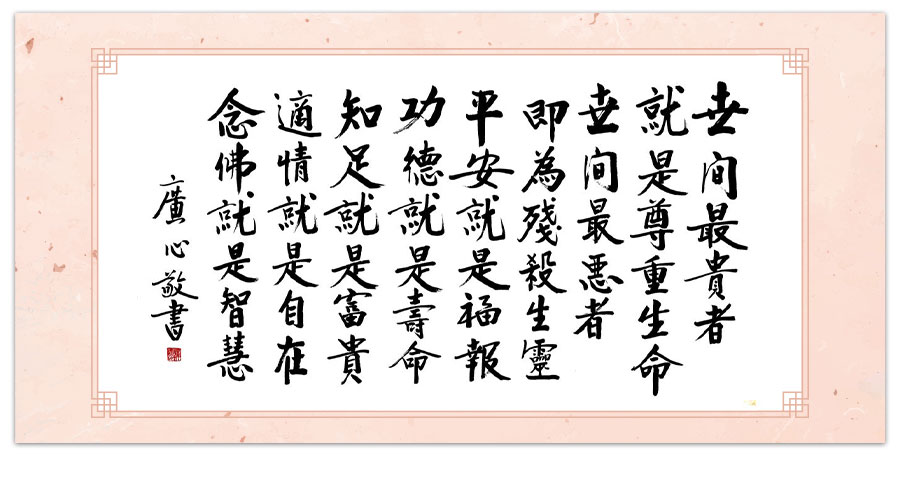 世间最貴者
就是尊重生命
世间最悪者
即為殘殺生靈
平安就是福報
功德就是壽命
知足就是富貴
適情就是自在
念佛就是智慧
廣心敬書